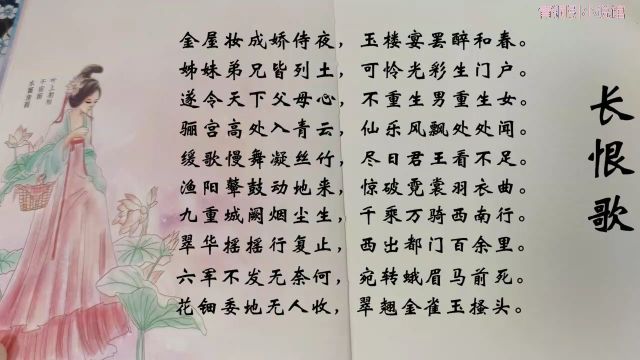 金屋妆成娇侍夜，玉楼宴罢醉和春。
姊妹弟兄皆列土，可怜光彩生门户。
遂令天下父母心，不重生男重生女。
骊宫高处入青云，仙乐风飘处处闻。
缓歌慢舞凝丝竹，尽日君王看不足。
渔阳鼙鼓动地来，惊破霓裳羽衣曲。
九重城阙烟尘生，千乘万骑西南行。
翠华摇摇行复止，西出都门百余里。
六军不发无奈何，宛转蛾眉马前死。
花钿委地无人收，翠翘金雀玉搔头。
长恨歌